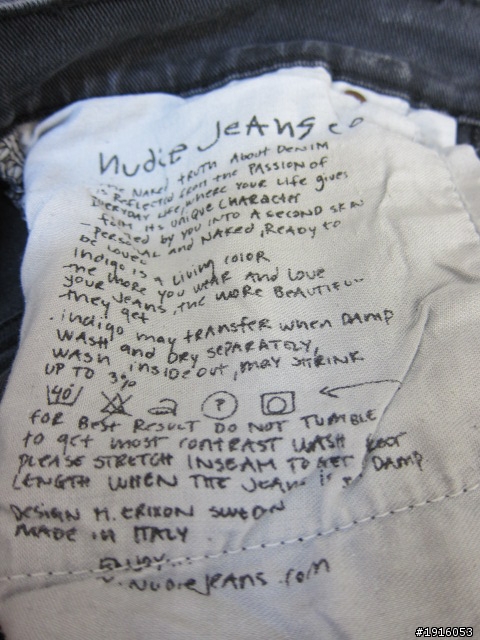 Nudie Jeans co
THE NAKED TRUTH ABOUT DENIM
IS REFLECTED from the PASSION OF
EVERYDAY LIFE, where YOUR Life gives
him its UNIQUE CHARACTER
PERSONAL by YOU INTO A SECOND SKIN
AND NAKED, READY to
be LOVED
INDIGO IS A LIVING COLOR
THE MORE YOU WEAR AND LOVE
YOUR JEANS, THE MORE BEAUTIFUL
they get
.indigo may transfer when DAMP
WASH AND DRY SEPARATELY,
WASH INSIDEOUT, MAY SHRINK
UP TO 3%
40
FOR BEST RESULT DO NOT TUMBLE
to get most CONTRAST WASH
PLEASE STRETCH INSEAM TO GET DAMP
LENGTH WHEN THE JEANS is
DESIGN M. ERIXON SWEDEN
MADE IN ITALY
ENJOY...
NUDIEJEANS.COM
#1916053